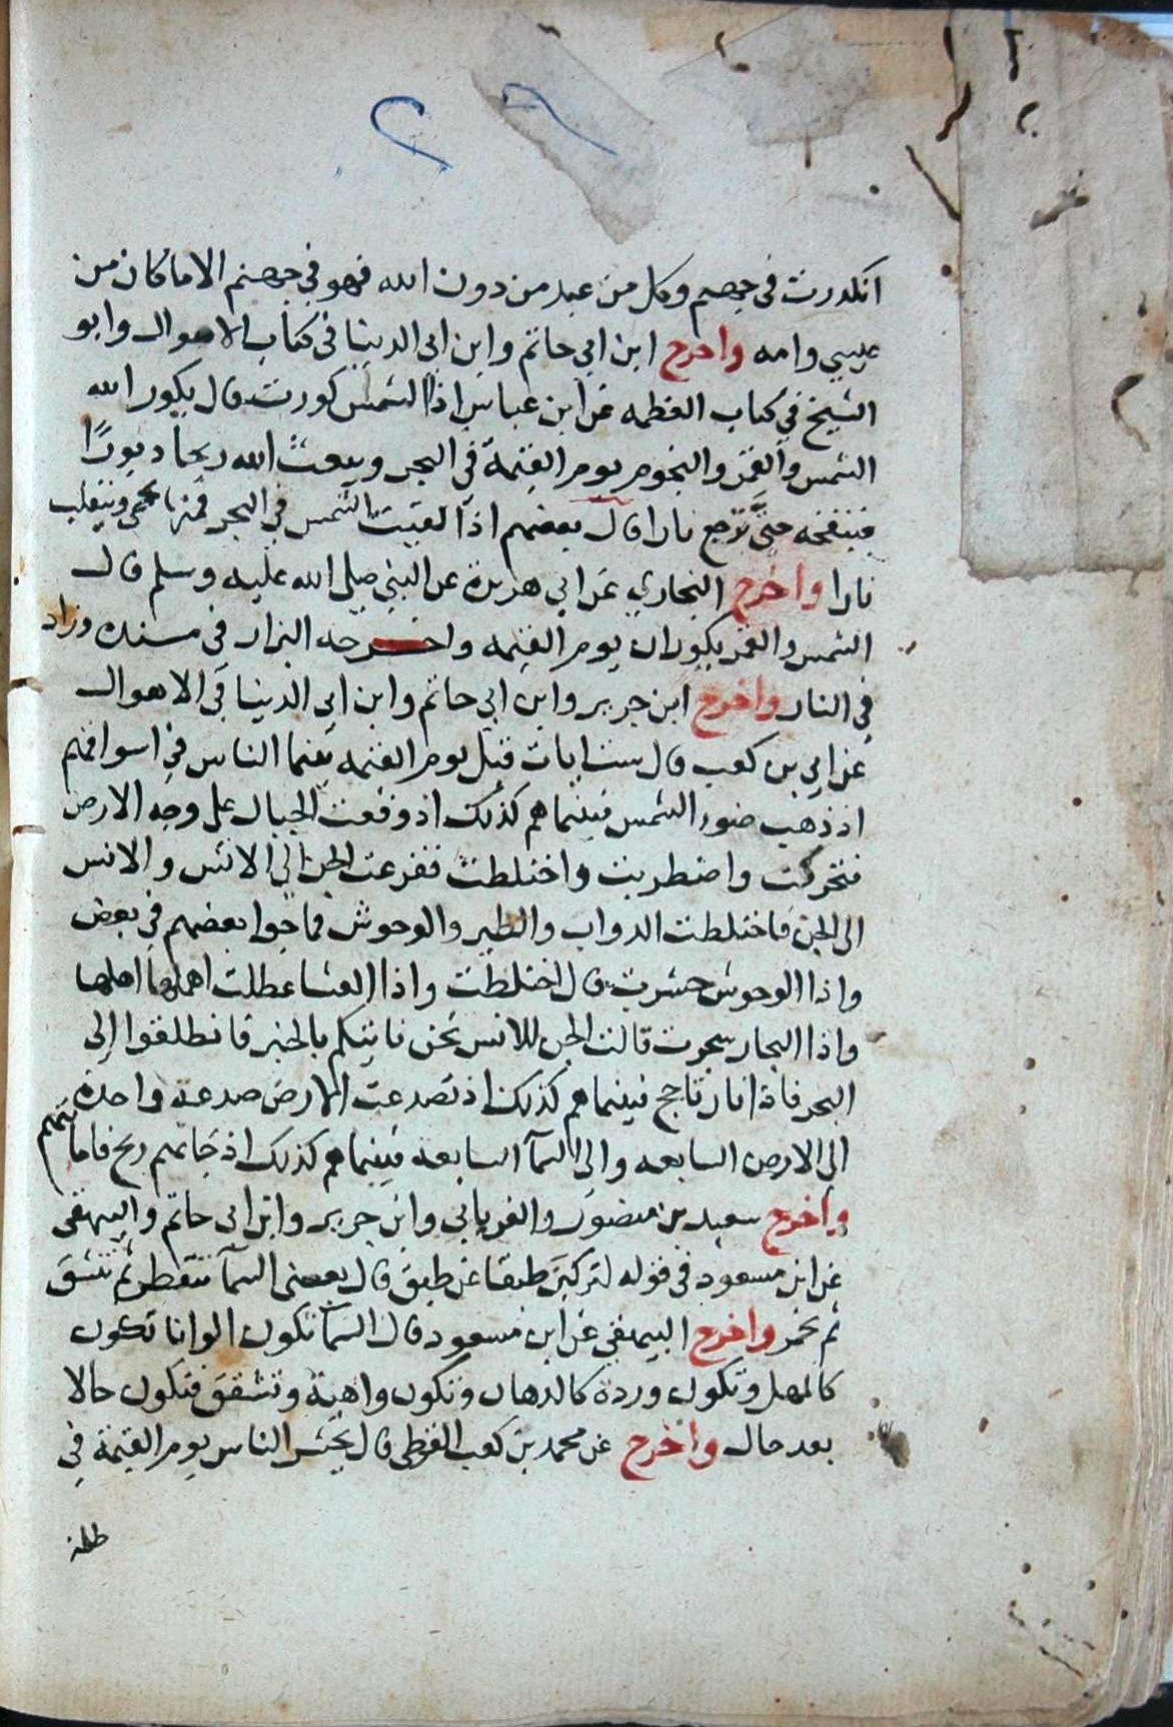 انكدرت في جهنم وكل من عبد من دون الله فهو في جهنم الا ما كان من
عيسي وامه واخرج ابن ابي حاتم وابن ابي الدنيا في كتاب الاهوال وابو
الشيخ في كتاب العظمه عن ابن عباس اذا الشمس كورت قال يكور الله
الشمس والقمر والنجوم يوم القيمة في البحر ويبعث الله ريحا دبورًا
فتنفخه حتي ترجع نارا قال بعضهم اذا القيت الشمس في البحر فمنها يحمي وينقلب
نارا واخرج البخاري عن ابي هريرة عن النبي صلي الله عليه وسلم قال
الشمس والقمر يكوران يوم القيمه واخرجه البزار في مسنده وزاد
في النار واخرج ابن جرير وابن ابي حاتم وابن ابي الدنيا في الاهوال
عن ابي بن كعب قال ست ايات قبل يوم القيمه بينما الناس في اسواقهم
اذ ذهب ضوء الشمس فبينما هم كذلك اذ وقعت الجبال علي وجه الارض
فتحركت واضطربت واختلطت ففزعت الجن الي الانس والانس
الي الجن فاختلطت الدواب والطير والوحوش فماجوا بعضهم في بعض
واذا الوحوش حشرت قال اختلطت واذا العشار عطلت اهملها اهلها
واذا البحار سجرت قالت الجن للانس نحن ناتيكم بالخبر فانطلقوا الي
البحر فاذا نار تاجج فبينما هم كذلك اذ تصدعت الارض صدعة واحدة
الي الارض السابعه والي السمآ السابعه فبينما هم كذلك اذ جاتهم ريح فاماتتهم
واخرج سعيد بن منصور والفريابي وابن جرير وابن ابي حاتم والبيهقي
عن ابن مسعود في قوله لتركبن طبقا عن طبق قال يعني السمآ تنفطر ثم تنشق
ثم تحمر واخرج البيهقي عن ابن مسعود قال السمآ تكون الوانا تكون
كالمهل وتكون وردة كالدهان وتكون واهية وتشقق فتكون حالا
بعد حال واخرج عن محمد بن كعب القرظي قال يحشر الناس يوم القيمة في
ظلمة